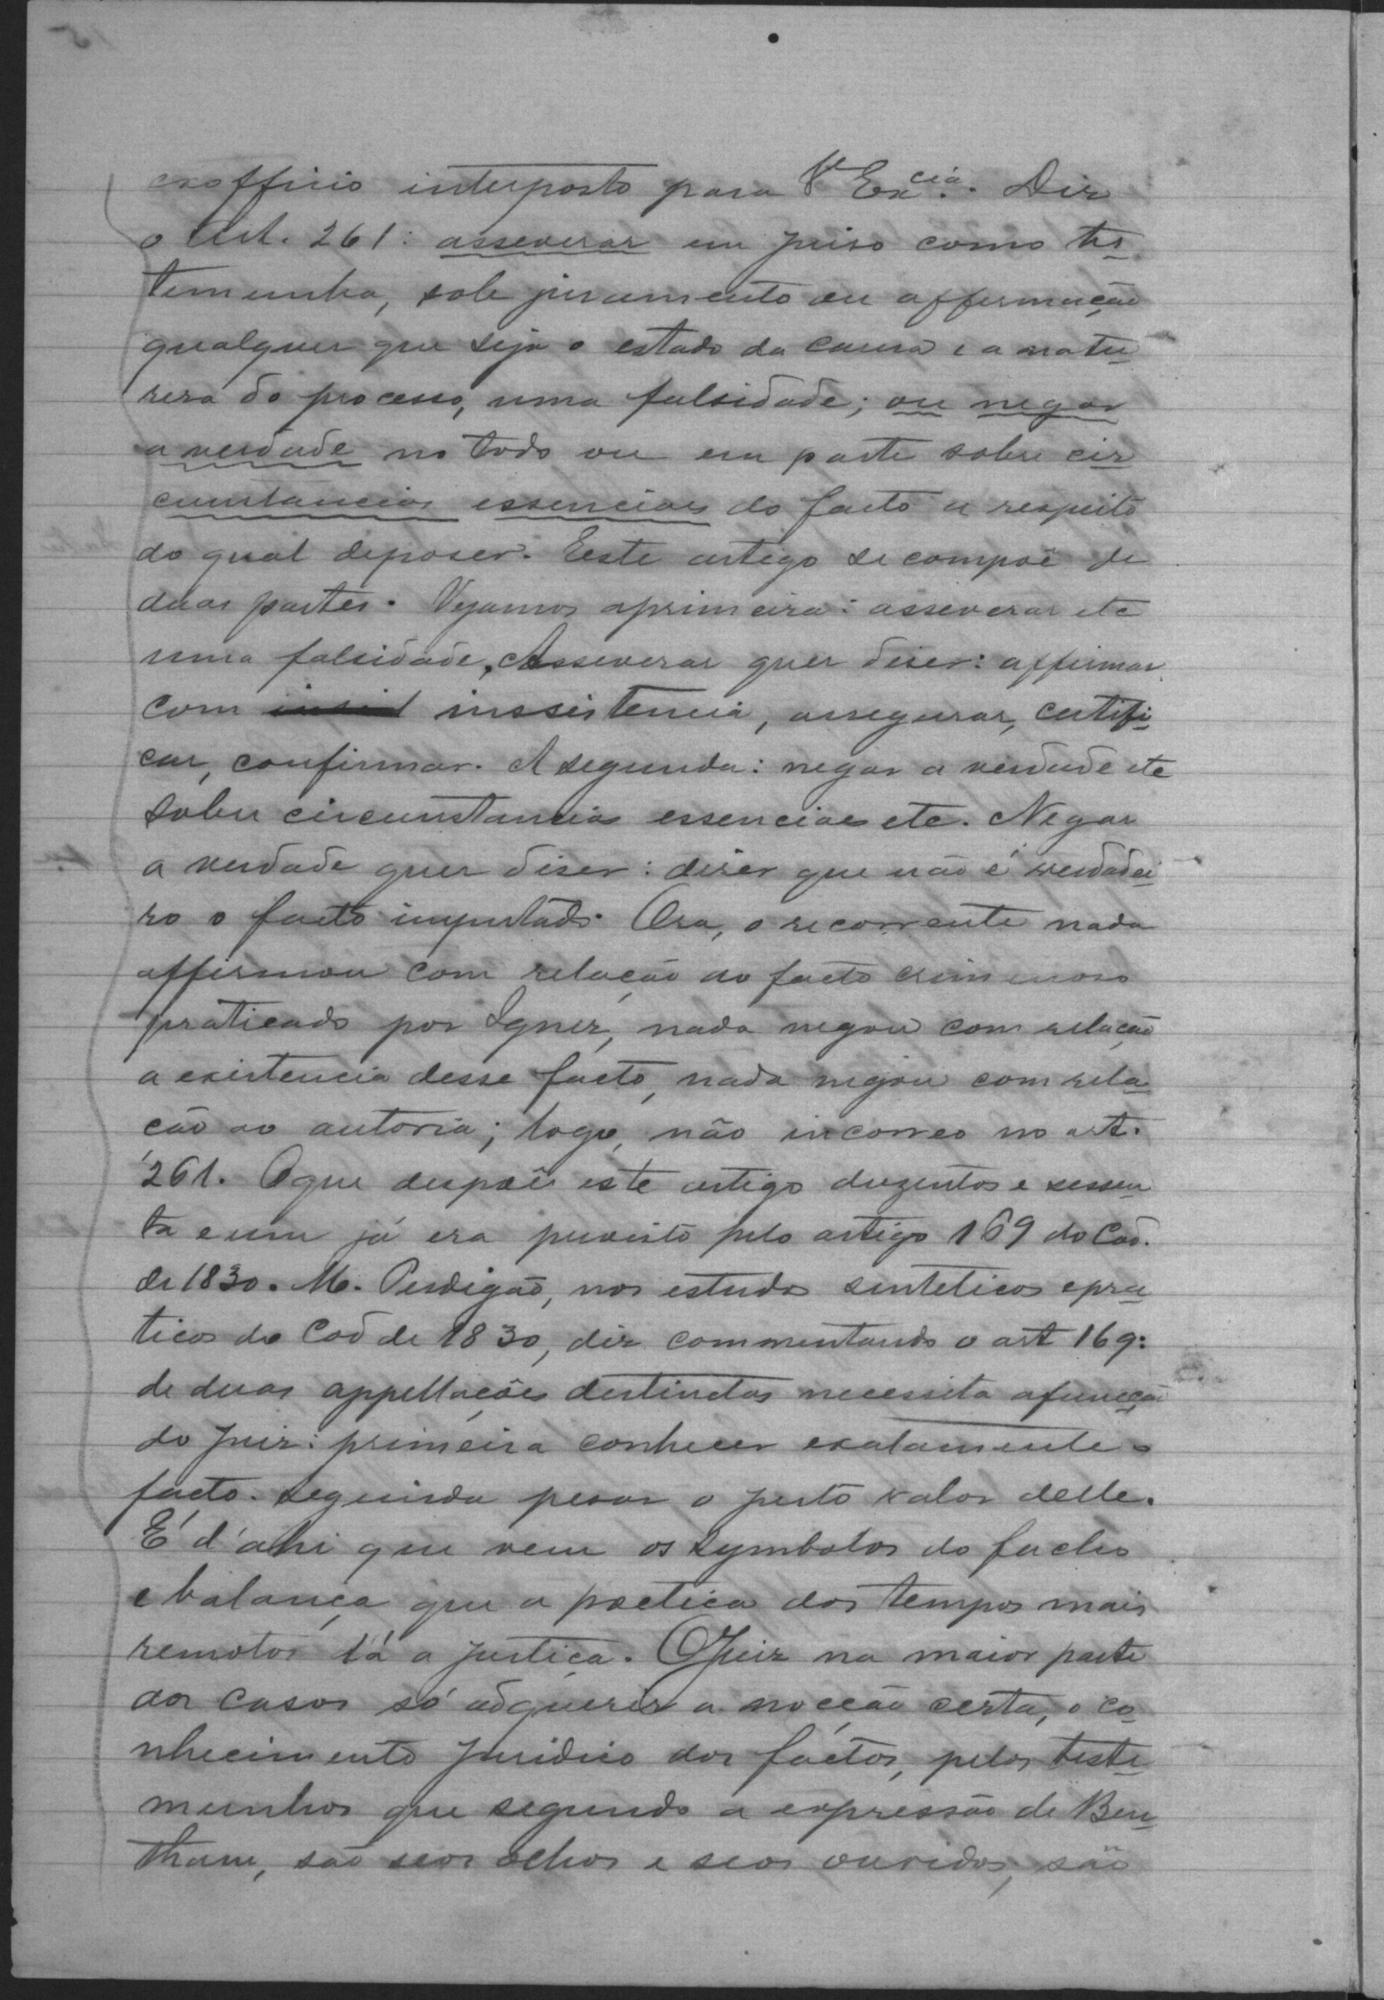 exofficio interposto para Vª Excia. Diz
o Art. 261: asseverar em juiso como tes
temunha, sob juramento ou affirmação
qualquer que seja o estado da causa e a natu
resa do processo, uma falsidade; ou negar
a verdade no todo ou em parte sobre cir
cunstancias essenciaes do facto a respeito
do qual deposer. Este artigo se compoê de
duas partes. Vejamos aprimeira: asseverar etc
uma falsidade. Asseverar quer diser: affirmar
com inssistencia, assegurar, certifi
car, confirmar. A segunda: negar a verdade etc
sobre circunstancias essenciaes etc. Negar
a verdade quer diser: diser que não é verdadei
ro o facto imputado. Ora, o recorrente nada
affirmou com relação ao facto criminoso
praticado por Ignez, nada negou com relação
a existencia desse facto, nada negou com rela
ção ao autoria; logo, não incorreo no art.
261. Oque despoê este artigo duzentos e sessen
ta e um já era previsto pelo artigo 169 do Cod.
de 1830. M. Perdigão, nos estudos sinteticos e pra
ticos do Cod de 1830, diz commentando o art 169:
de duas appellações destinctas necessita afuncção
do Juiz: primeira conhecer exatamente o
facto. segunda pesar o justo valor delle.
É d'ahi que vem os symbolos do facho
e balança que a poetica dos tempos mais
remotos dá a justiça. O Juiz na maior parte
dos casos só adquerir a nocção certa, o co
nhecimento juridico dos factos, pelos teste
munhos que segundo a expressão de Ben
tham, são seos olhos e seos ouvidos, são